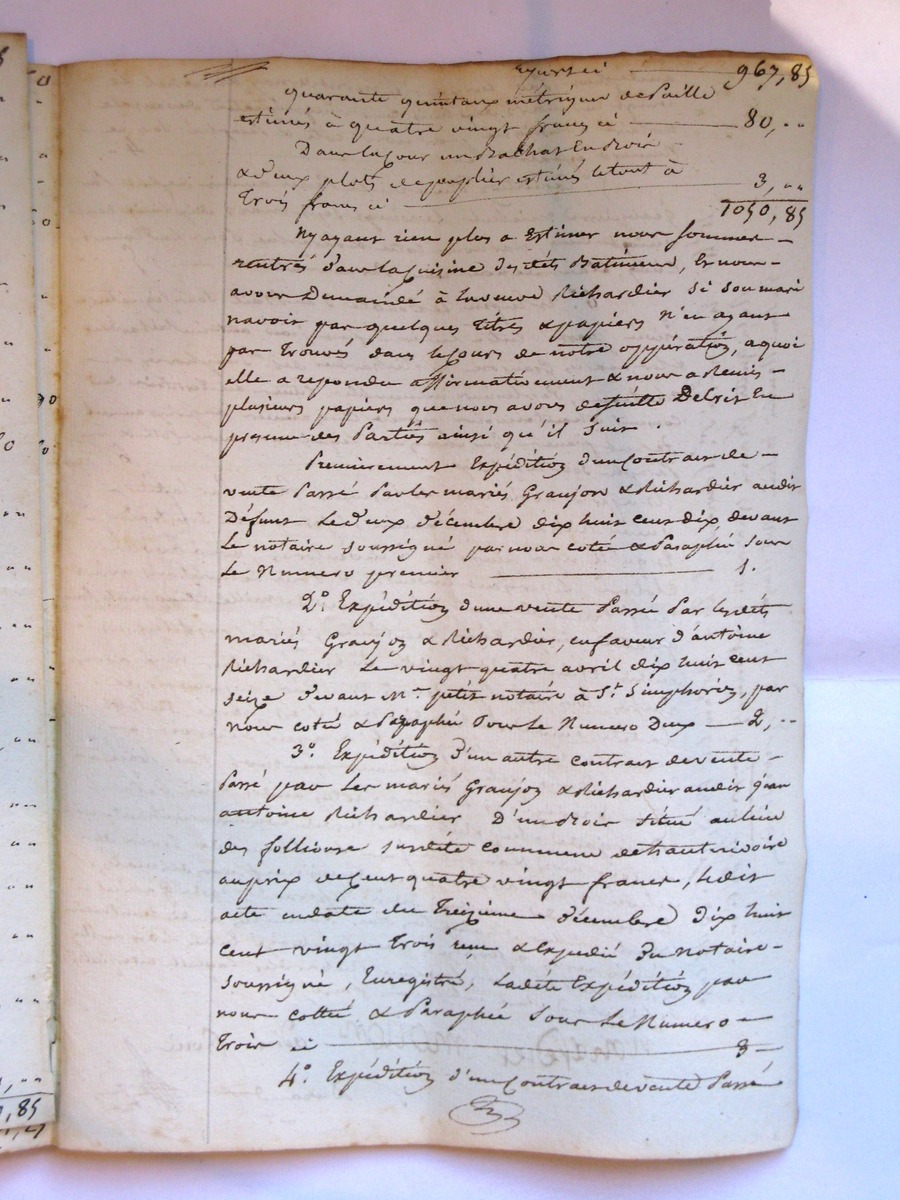 967,85
quarante quintaux métrique de Paille
estimés à quatre vingt franc ci 80, ""
Dans la Cour un Bachat En Bois
& deux plots de peuplier estimés le tout à
Trois francs ci 3, ""
1050,85
Nyayant rien plus a Estimer nous sommes
rentrés dans la Cuisine desdits Batiments, Et nous
avons Demandé à la veuve Richardier si son mari
navoit pas quelques titres & papiers n'en ayant
pas Trouvés dans le Cours de notre oppération, a quoi
elle a repondu affirmativement & nous a remis
plusieurs papiers que nous avons desuitte Décrit En
presence des Parties ainsi qu'il suit.
Premierement Expédition d'un Contrat de
vente Passé Par les mariés Graujon & Richardier audit
Défunt Le deux décembre dix huit cent dix, devant
Le notaire soussigné par nous coté & Paraphé sous
Le Numero premier 1.
2° Expédition d'une vente Passée Par lesdits
mariés Graujon & Richardier, en faveur d'antoine
Richardier Le vingt quatre avril dix huit cent
seize devant Me petit notaire à St Simphorien, par
nous coté & Paraphé sous Le Numero Deux 2, ""
3° Expédition d'un autre contrat de vente
Passé par Les mariés Graujon & Richardier audit Jean
antoine Richardier D'un Bois situé au lieu
des follieuse susdite commune de hauterivoire
au prix de Cent quatre vingt francs, Ledit
acte endate du Treizieme décembre dix huit
cent vingt Trois reçu & Expedié Du Notaire
soussigné, Enregistré, Ladite Expédition par
nous cottée & Paraphée sous Le Numero
Trois ci 3
4° Expédition d'un Contrat de vente Passé